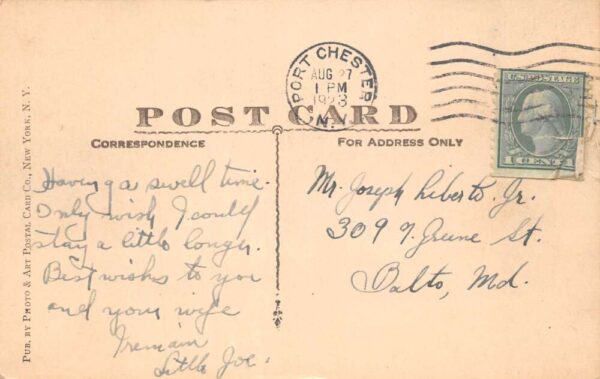 PORT CHESTER
AUG 27
1 PM
1923
N.
U.S. POSTAGE
1 CENT
POST CARD
CORRESPONDENCE
FOR ADDRESS ONLY
Having a swell time.
Only wish I could
stay a little longer.
Best wishes to you
and your wife
I remain
Little Joe.
Mr. Joseph Liberto. Jr.
309 N. Greene St.
Balto, Md.
PUB. BY PHOTO & ART POSTAL CARD CO., NEW YORK, N. Y.